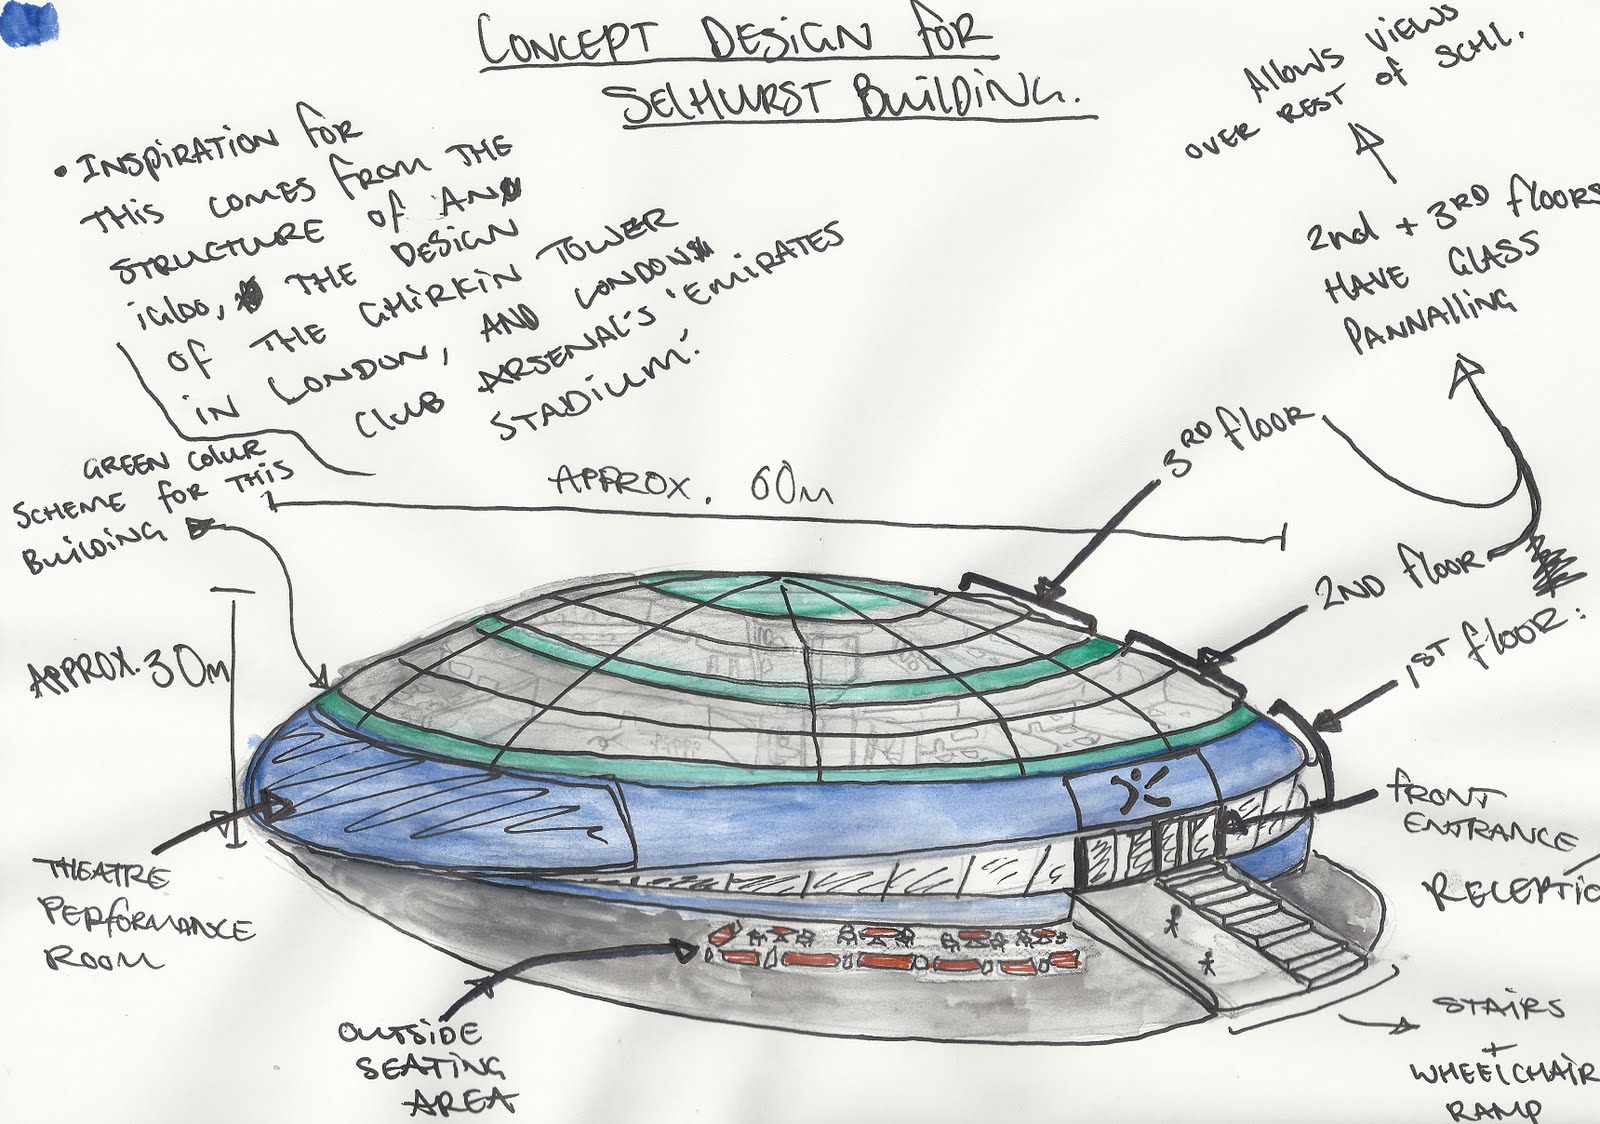 CONCEPT DESIGN FOR
SELHURST BUILDING.
• INSPIRATION FOR
THIS COMES FROM THE
STRUCTURE OF AN
IGLOO, THE DESIGN
OF THE GHIRKIN TOWER
IN LONDON, AND LONDON
CLUB ARSENAL'S 'EMIRATES
STADIUM'.
GREEN COLUR
SCHEME FOR THIS
BUILDING
APPROX. 60m
APPROX. 30m
ALLOWS VIEWS
OVER REST OF SCHL.
2nd + 3RD FLOORS
HAVE GLASS
PANNALLING
3RD FLOOR
2ND FLOOR
1ST FLOOR:
FRONT
ENTRANCE
RECEPTIO
STAIRS
+
WHEELCHAIR
RAMP
THEATRE
PERFORMANCE
ROOM
OUTSIDE
SEATING
AREA